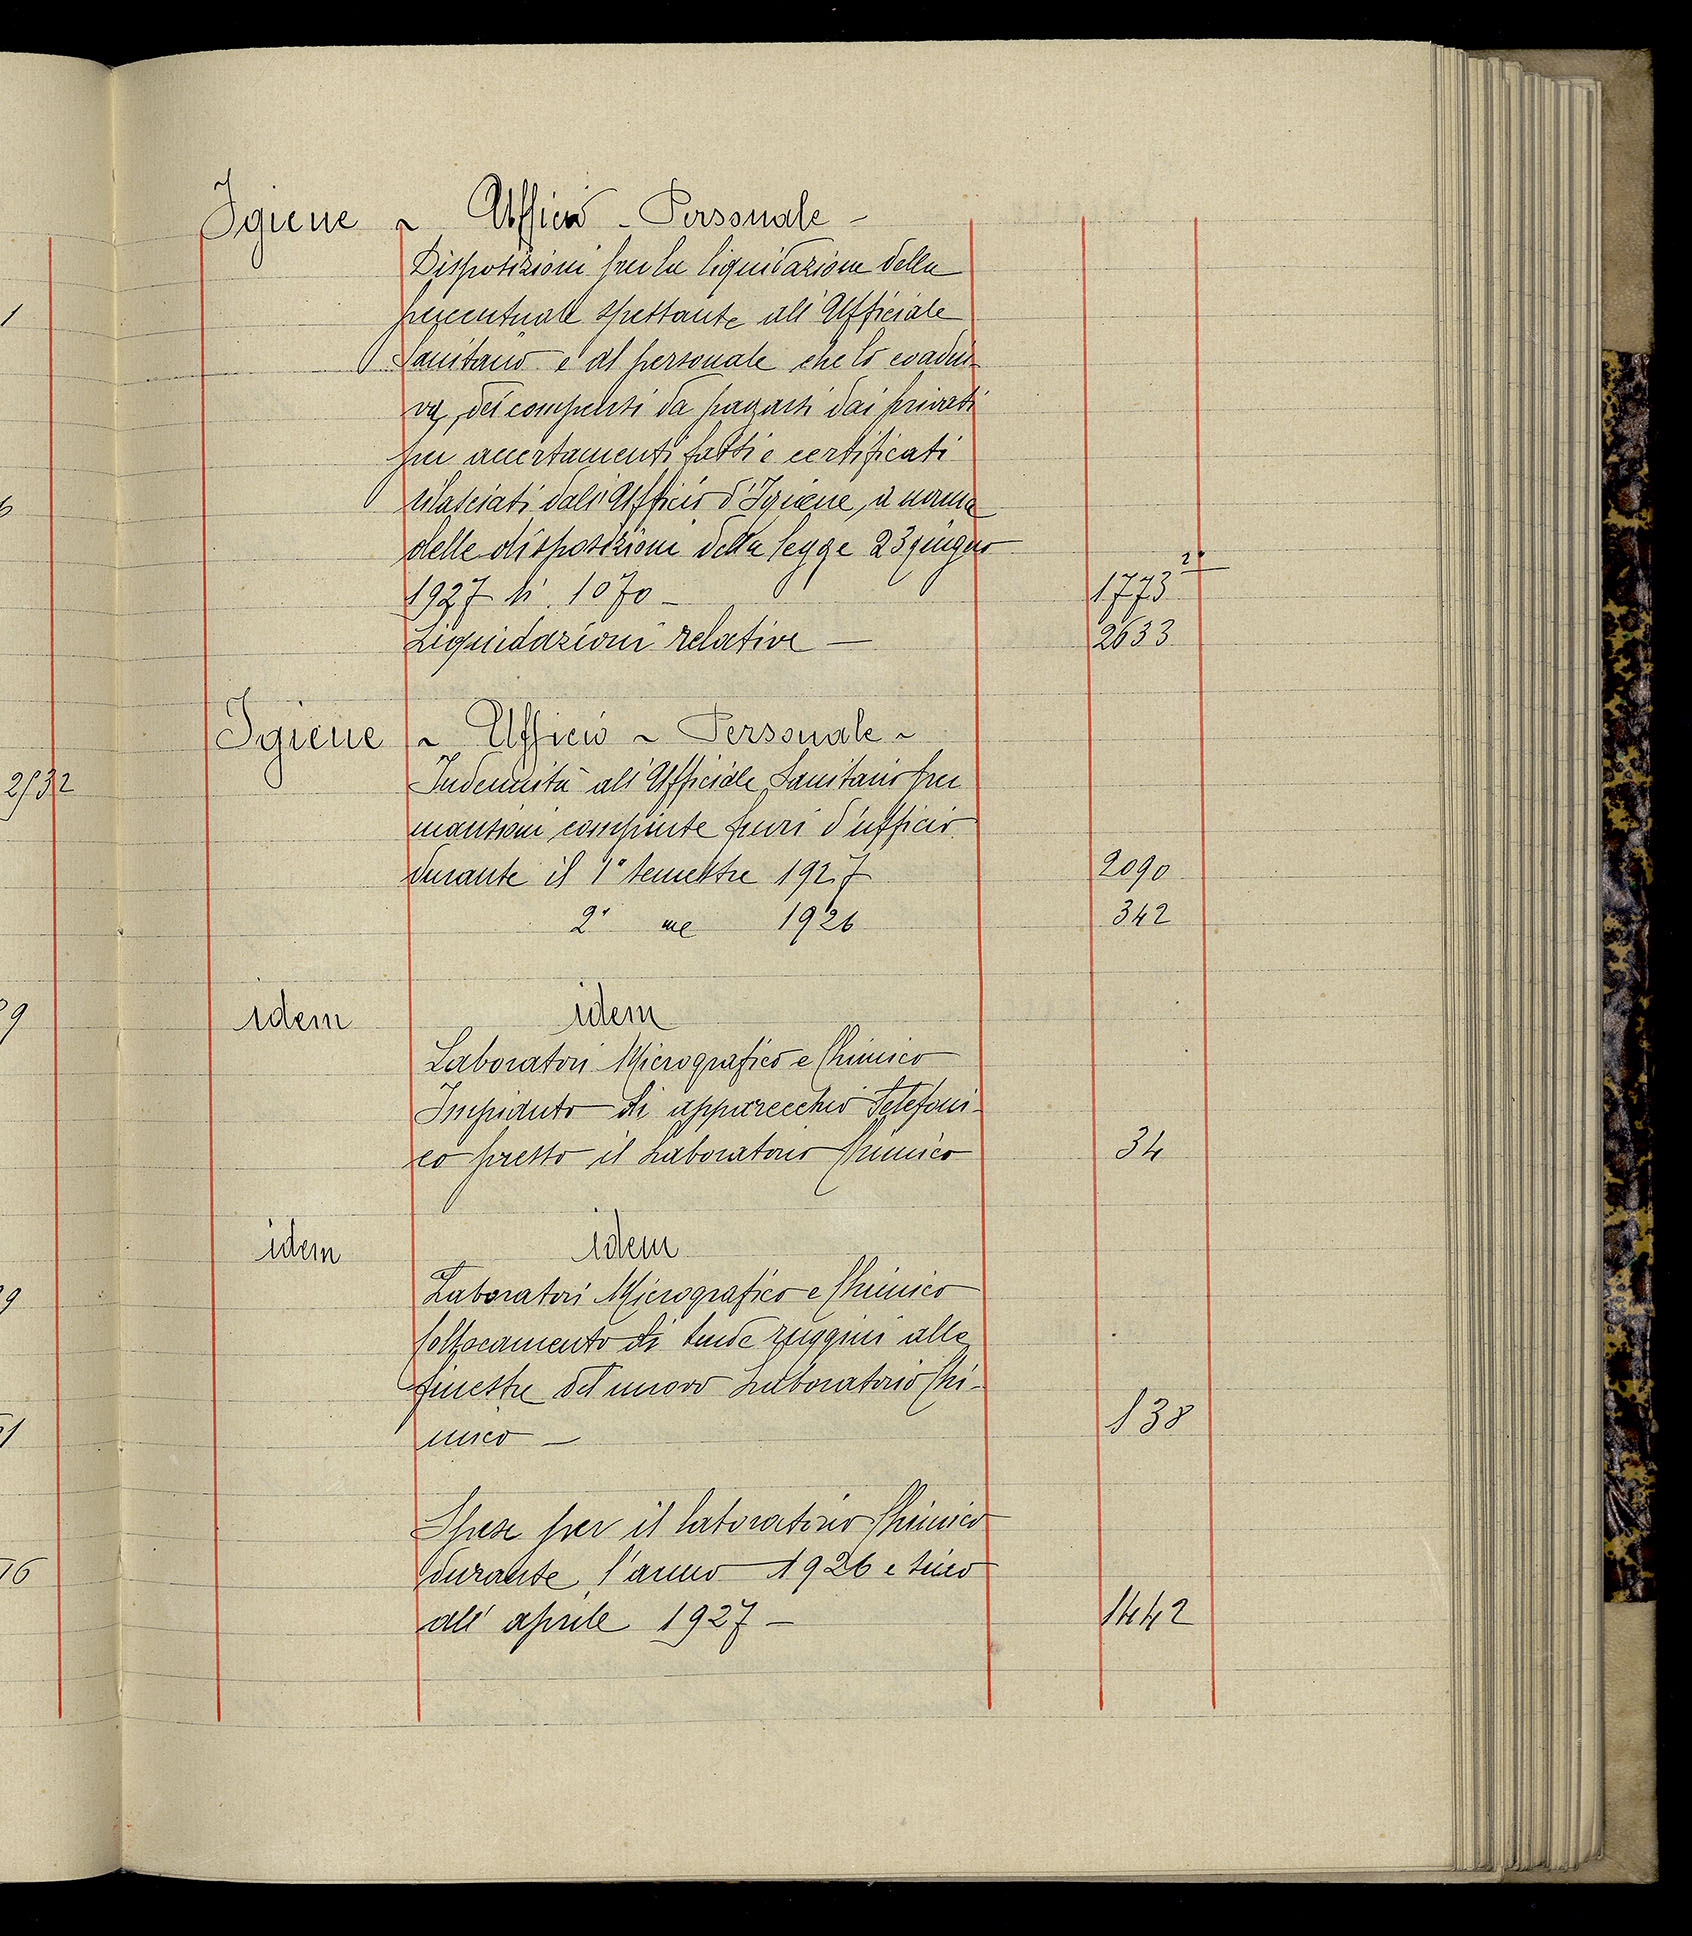 Igiene ~ Ufficio - Personale -
Disposizioni per la liquidazione della
percentuale spettante all'Ufficiale
Sanitario e al personale che lo coadiu-
va, dei compensi da pagarsi dai privati
per accertamenti fatti e certificati
rilasciati dall'Ufficio d'Igiene, a norma
delle disposizioni della legge 23 giugno
1927 N. 1070 - 1773 2°
Liquidazioni relative - 2633
Igiene ~ Ufficio ~ Personale ~
Indennità all'Ufficiale Sanitario per
mansioni compiute fuori d'ufficio
durante il 1° semestre 1927 2090
2° me 1926 342
idem idem
Laboratori Micrografico e Chimico
Impianto di apparecchio Telefoni-
co presso il Laboratorio Chimico 34
idem idem
Laboratori Micrografico e Chimico
Collocamento di tende ruggini alle
finestre del nuovo Laboratorio Chi-
mico - 138
Spese per il laboratorio Chimico
durante l'anno 1926 e sino
all'aprile 1927 - 1442
1
2532
9
9
1
76